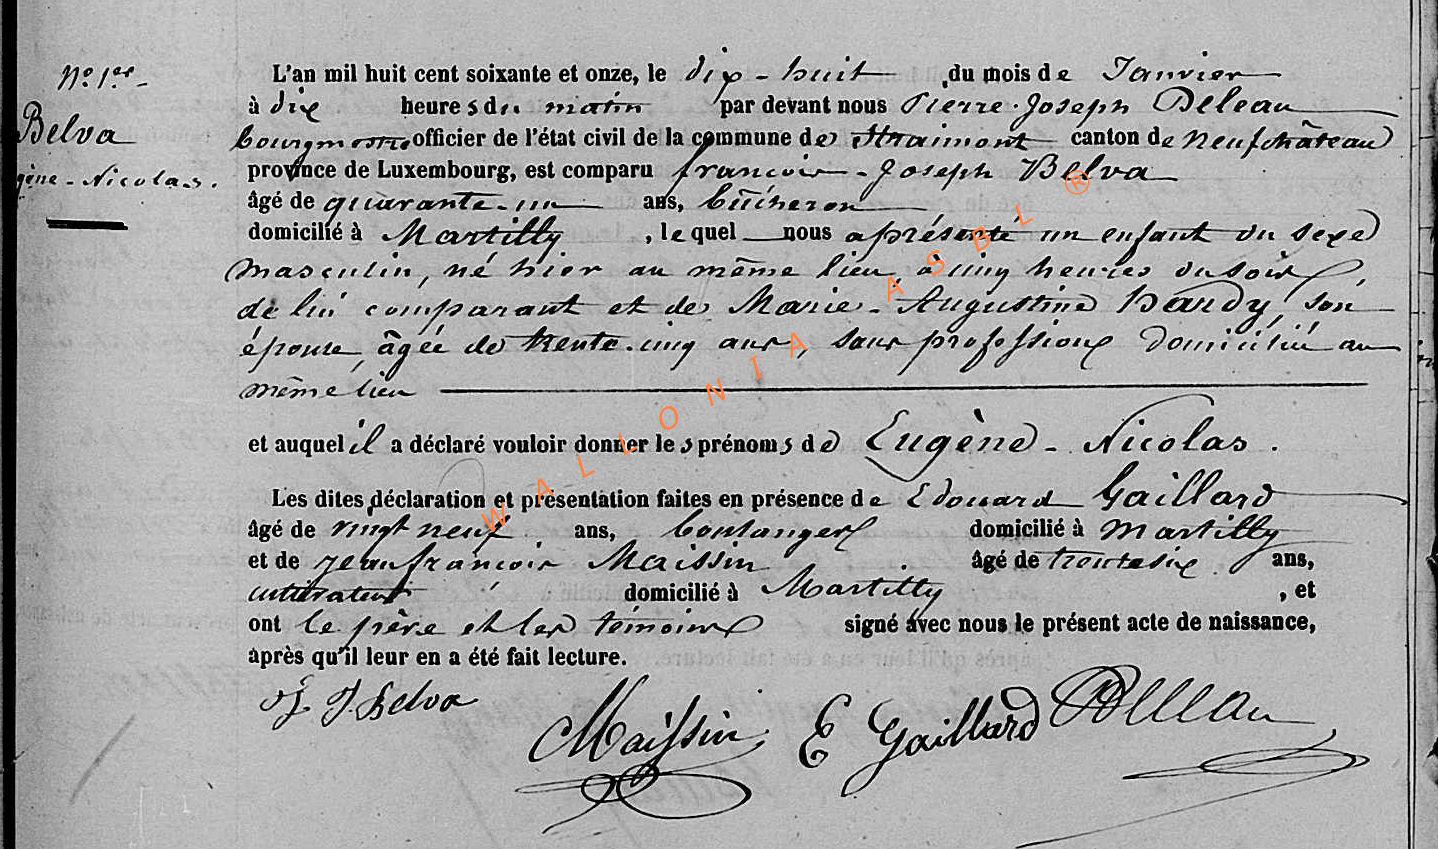 N° 1er
Belva
gène-Nicolas.
L'an mil huit cent soixante et onze, le dix-huit du mois de Janvier
à dix heures du matin par devant nous Pierre-Joseph Deleau
bourgmestre officier de l'état civil de la commune de Straimont canton de Neufchâteau
province de Luxembourg, est comparu françois-Joseph Belva
âgé de quarante-un ans, bûcheron
domicilié à Martilly, lequel nous a présenté un enfant du sexe
masculin, né hier au même lieu, à cinq heures du soir,
de lui comparant et de Marie-Augustine Hardy, son
épouse, âgée de trente-cinq ans, sans profession domiciliée au
même lieu
et auquel il a déclaré vouloir donner les prénoms de Eugène-Nicolas.
Les dites déclaration et présentation faites en présence de Edouard Gaillard
âgé de vingt neuf ans, boulanger domicilié à Martilly
et de jean françois Maissin âgé de trente six ans,
cultivateur domicilié à Martilly, et
ont le père et les témoins signé avec nous le présent acte de naissance,
après qu'il leur en a été fait lecture.
f. J. Belva Maissin E Gaillard Deleau
WALLONIA ASBL ®